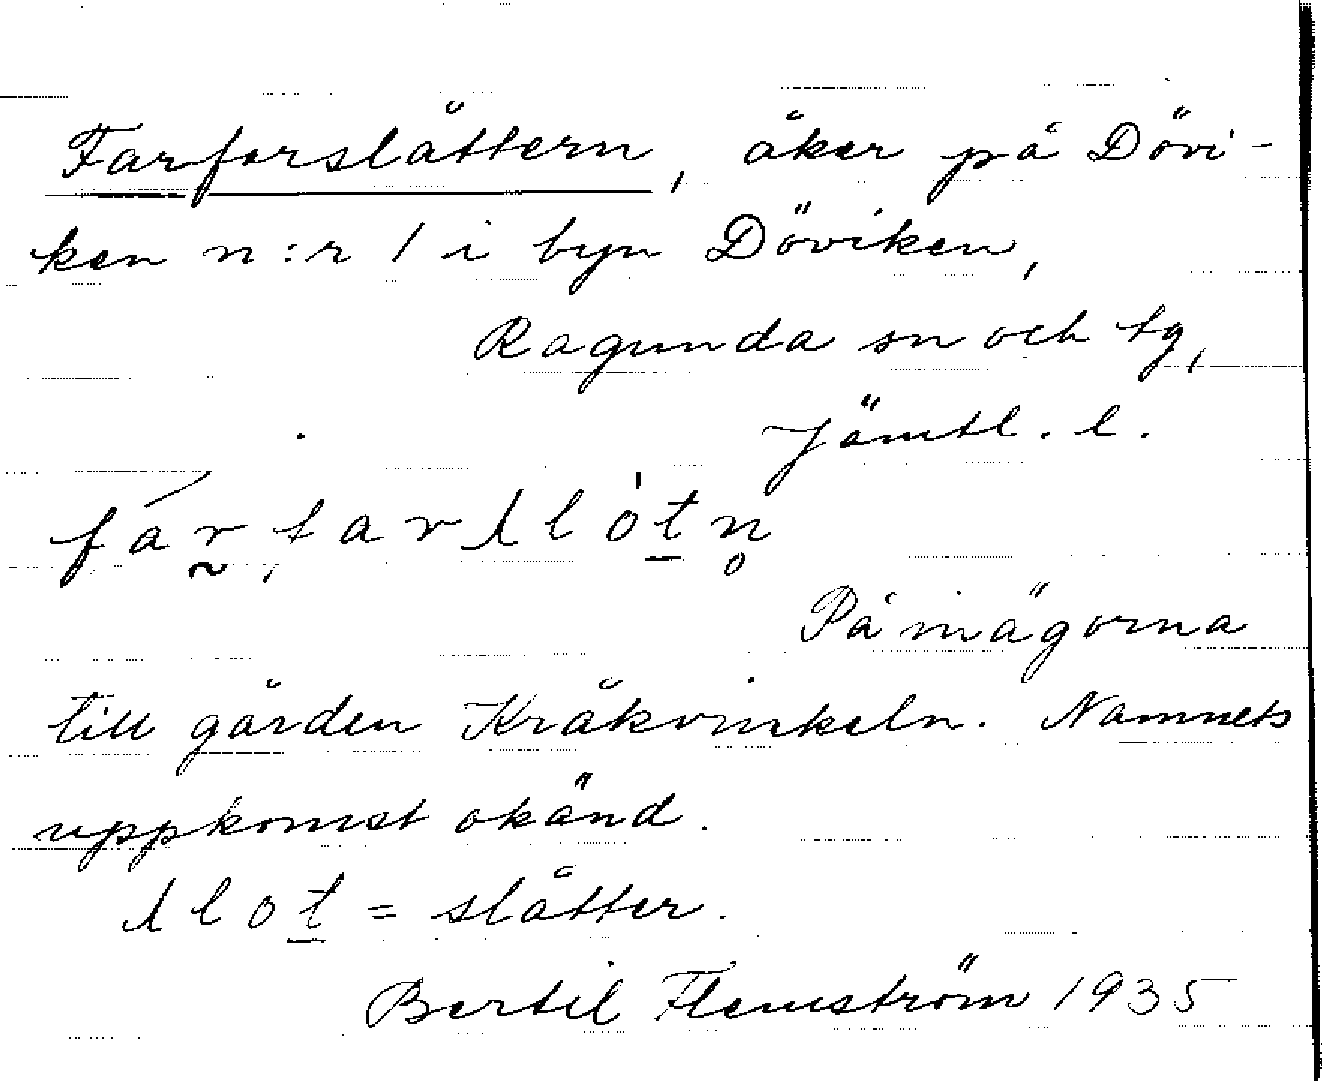 Farforslåttern, åker på Dövi-
ken n:r 1 i byn Döviken,
Ragunda sn och tg,
Jämtl. l.
På inägorna
till gården Kråkvinkeln. Namnets
uppkomst okänd.
= slåtter.
Bertil Flemström 1935